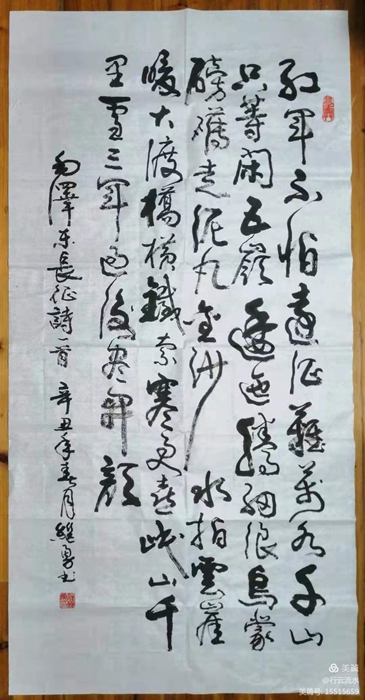 紅軍不怕遠征難萬水千山
只等閑五嶺逶迤騰細浪烏蒙
磅礴走泥丸金沙水拍雲崖
暖大渡橋橫鐵索寒更喜岷山千
里雪三軍過後盡開顏
毛澤東長征詩一首 辛丑年春月
美篇
@行云流水
美篇号:15515659